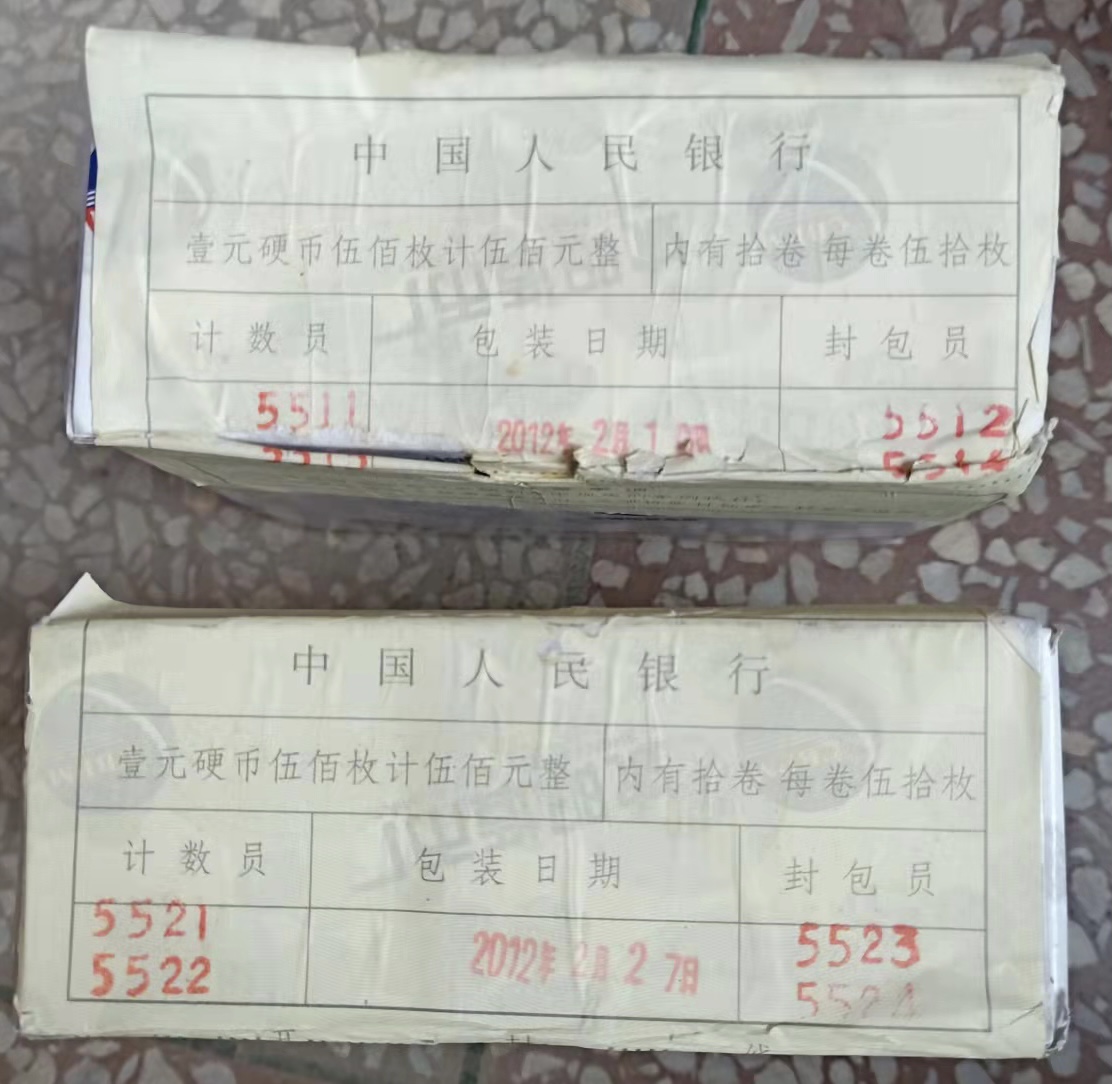 中国人民银行
壹元硬币伍佰枚计伍佰元整 内有拾卷 每卷伍拾枚
计数员 包装日期 封包员
5511 2012年 2月 1 5512
5514
中国人民银行
壹元硬币伍佰枚计伍佰元整 内有拾卷 每卷伍拾枚
计数员 包装日期 封包员
5521 5523
5522 2012年 2月 2 7日 5524